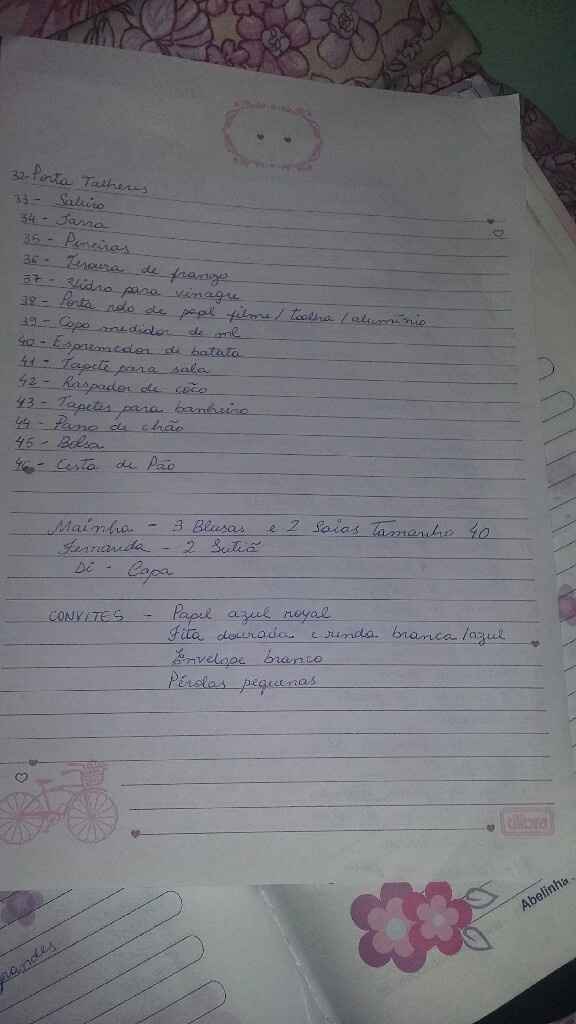 32- Porta Talheres
33 - Saleiro
34 - Jarra
35 - Peneiras
36 - Tesoura de frango
37 - Vidro para vinagre
38 - Porta rolo de papl filme / toalha / alumínio
39 - Copo medidor de ml
40 - Espremedor de batata
41 - Tapete para sala
42 - Raspador de côco
43 - Tapetes para banheiro
44 - Pano de chão
45 - Bolsa
46 - Cesta de Pão
Mainha - 3 Blusas e 2 Saias Tamanho 40
Fernanda - 2 Sutiã
Di - Capa
CONVITES - Papel azul royal
Fita dourada e renda branca / azul
Envelope branco
Pérolas pequenas
tilibra
Abelinha
grandes